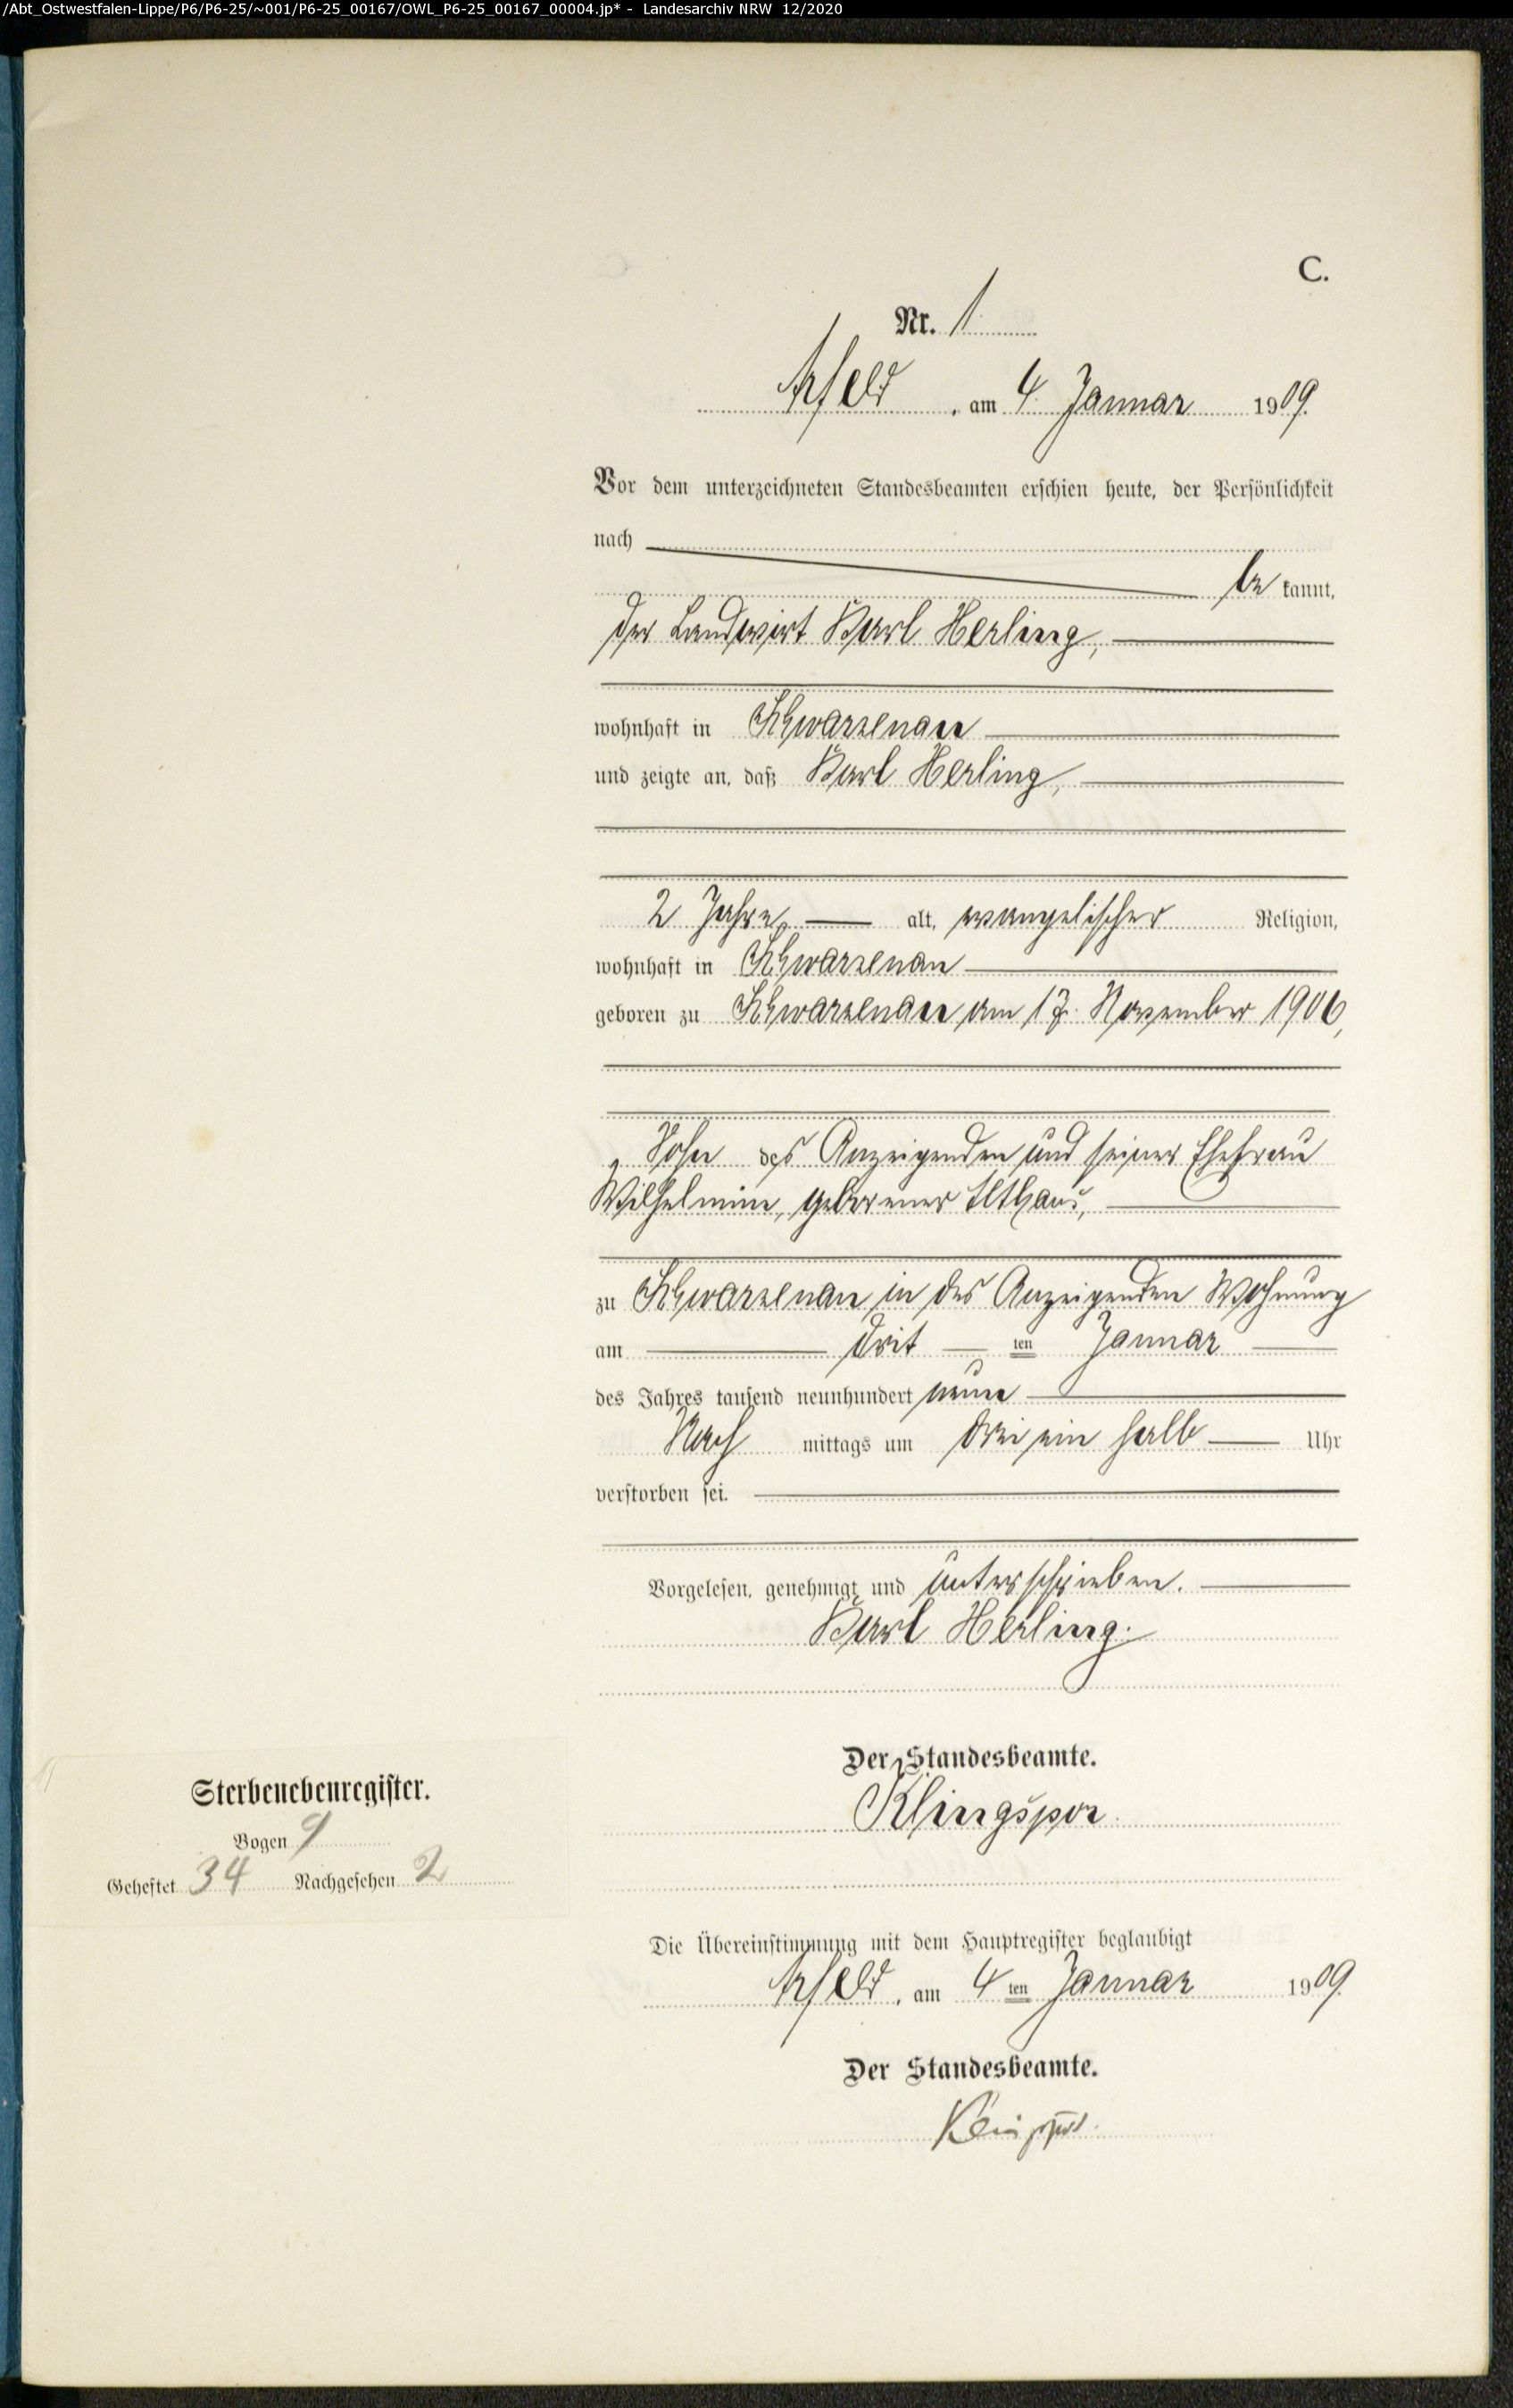 /Abt_Ostwestfalen-Lippe/P6/P6-25/~001/P6-25_00167/OWL_P6-25_00167_00004.jp* - Landesarchiv NRW 12/2020
C.
Nr. 1
Arfeld, am 4. Januar 1909.
Vor dem unterzeichneten Standesbeamten erschien heute, der Persönlichkeit
nach
bekannt,
der Landwirt Karl Herling,
wohnhaft in Schwarzenau
und zeigte an, daß Karl Herling,
2 Jahre, alt, evangelischer Religion,
wohnhaft in Schwarzenau
geboren zu Schwarzenau am 17. November 1906,
Sohn des Anzeigenden und seiner Ehefrau
Wilhelmine, geborener Althaus,
zu Schwarzenau in des Anzeigenden Wohnung
am drit ten Januar
des Jahres tausend neunhundert neun
Nachmittags um drei ein halb Uhr
verstorben sei.
Vorgelesen, genehmigt und unterschrieben.
Karl Herling.
Der Standesbeamte.
Klingspor.
Sterbenebenregister.
Bogen 9
Geheftet 34 Nachgesehen 2
Die Übereinstimmung mit dem Hauptregister beglaubigt
Arfeld, am 4 ten Januar 1909.
Der Standesbeamte.
Klingspor.